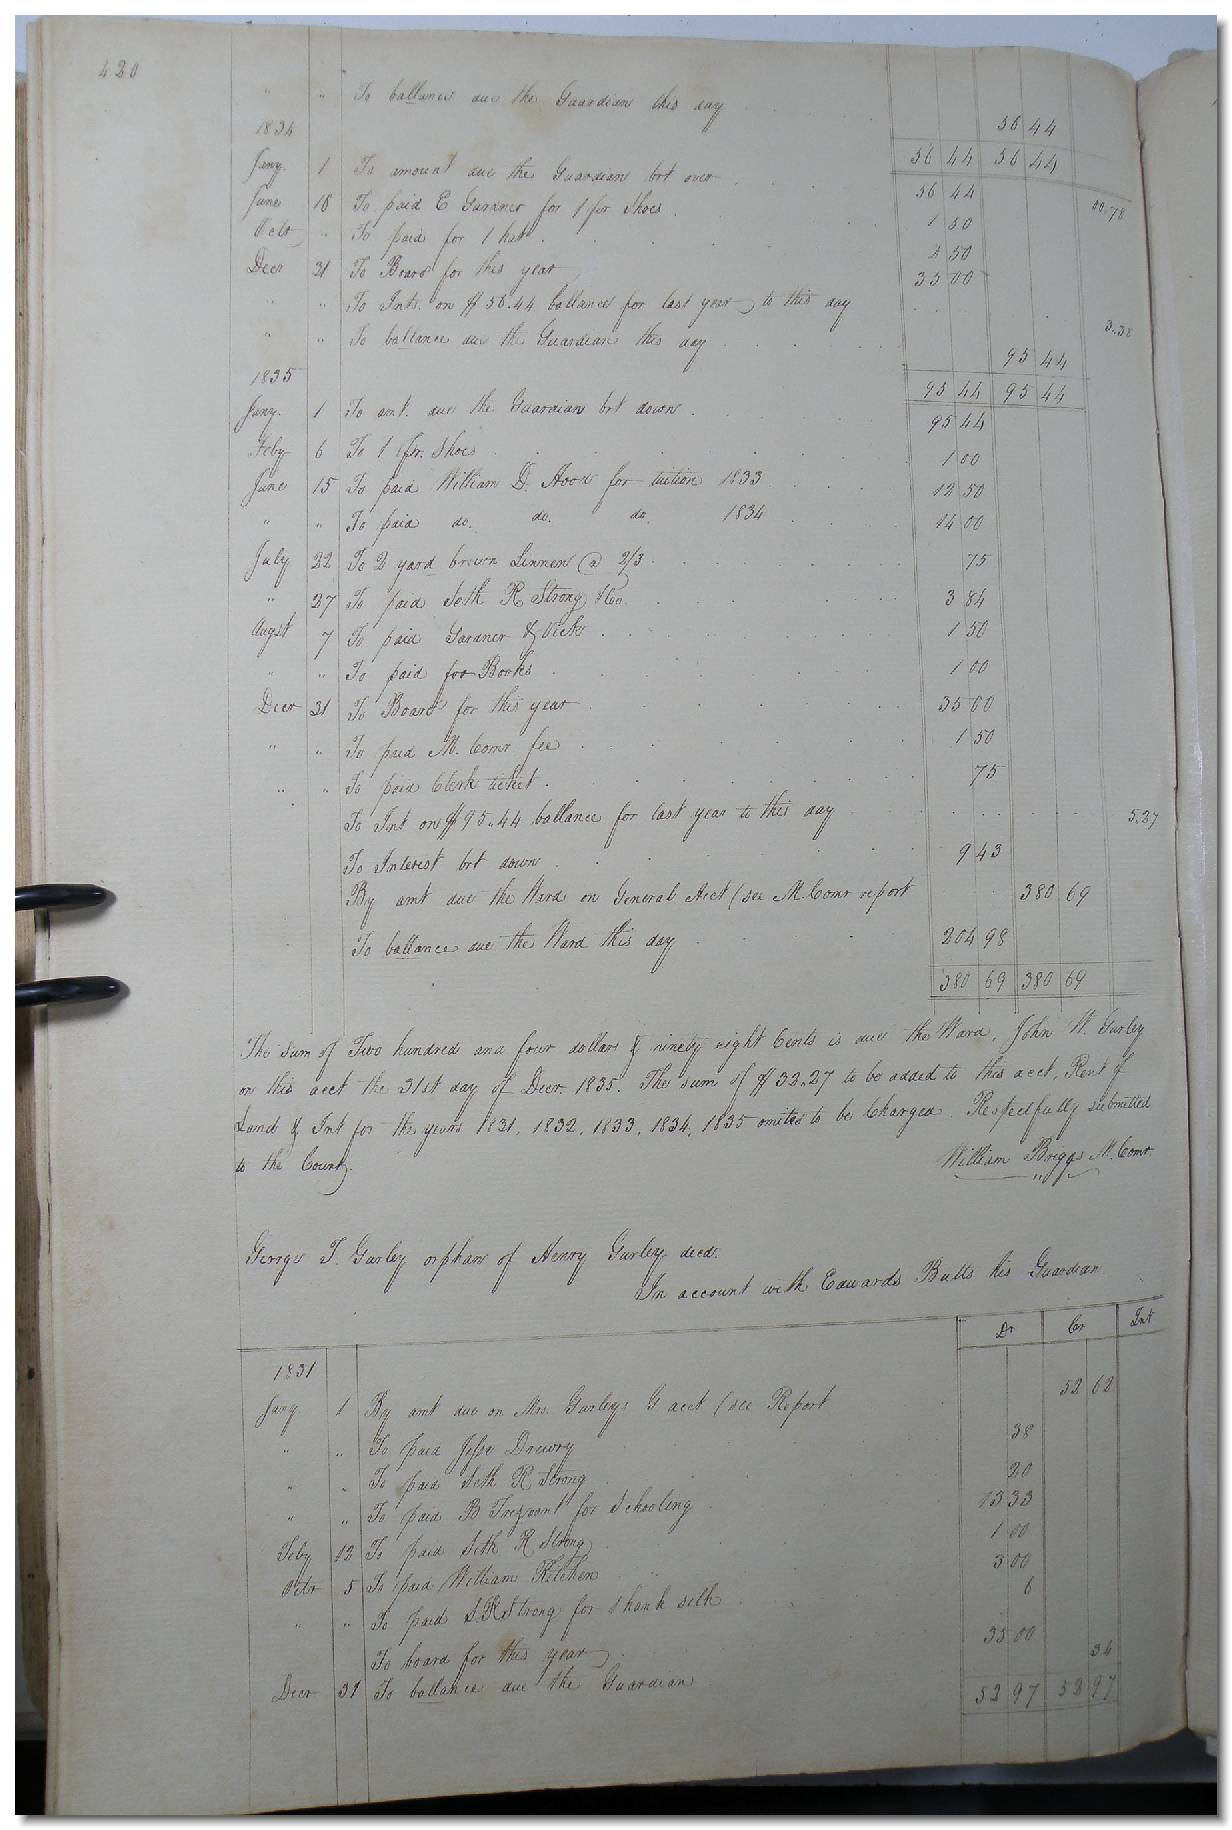 420
" " To ballance due the Guardian this day 56 44
1834 56 44 56 44
Jany. 1 To amount due the Guardian brt over 56 44
June 18 To paid E Gardner for 1 pr Shoes 1 50
Octr " To paid for 1 hat 2 50
Decr 31 To Board for this year 35 00
" " To Intr. on $56.44 ballance for last year to this day 3.38
" " To ballance due the Guardian this day 95 44
1835 95 44 95 44
Jany. 1 To amt. due the Guardian brt down 95 44
Feby 6 To 1 pr. Shoes 1 00
June 15 To paid William D. Hood for tuition 1833 12 50
" " To paid do. do. do. 1834 14 00
July 22 To 2 yard brown Linnen @ 2/3 75
" 27 To paid Seth R Strong &Co. 3 84
Augst 7 To paid Gardner & Vick 1 50
" " To paid for Books 1 00
Decr 31 To Board for this year 35 00
" " To paid M. Comr fee 1 50
" " To paid Clerk ticket 75
To Int on $95.44 ballance for last year to this day
To Interest brt down 9 43
By amt due the Ward on General Acct (see M. Comr report 380 69
To ballance due the Ward this day 204 98
380 69 380 69
The sum of Two hundred and four dollars & ninety eight Cents is due the Ward, John W. Gurley
on this acct the 31st day of Decr. 1835. The sum of $32.27 to be added to this acct, Rent of
Land & Int for the years 1831, 1832, 1833, 1834, 1835 omited to be Charged. Respectfully submitted
to the Court. William Briggs M. Comr.
George T. Gurley orphan of Henry Gurley decd.
In account with Edwards Butts his Guardian
Dr Cr Int
1831
Jany 1 By amt due on Mrs. Gurleys G acct (see Report 52 62
" " To paid Jesse Drewry 38
" " To paid Seth R Strong 20
" " To paid B Trezvant for Schooling 13 33
Feby 12 To paid Seth R Strong 1 00
Octr 5 To paid William Kitchen 3 00
" " To paid S.R Strong for 1 hank silk 6
To board for this year 35 00
Decr 31 To ballance due the Guardian 34
52 97 52 97